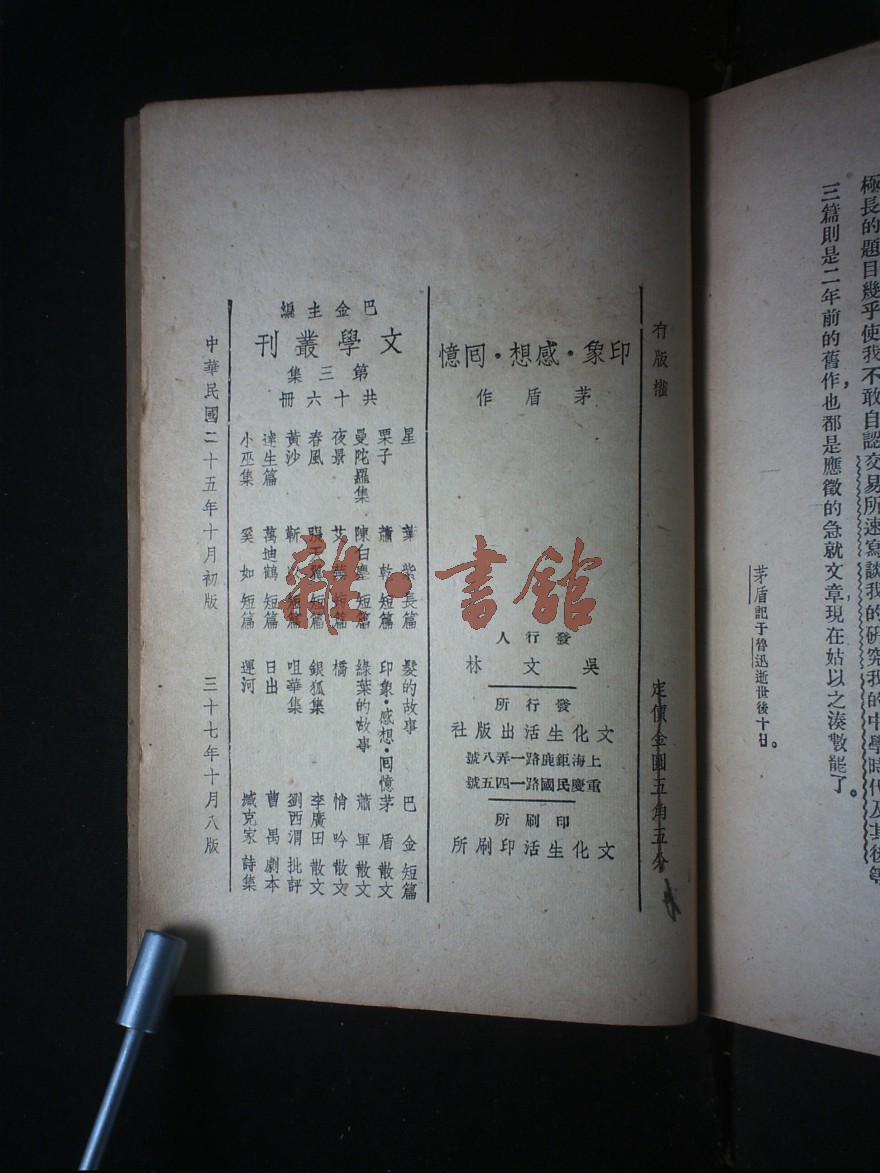 極長的題目幾乎使我不敢自認交易所速寫談我的研究我的中學時代及其後等
三篇則是二年前的舊作，也都是應徵的急就文章，現在姑以之湊數罷了。
茅盾記于魯迅逝世後十日。
有版權
定價金圓五角五分
印象·感想·囘憶
茅盾作
發行人
吳文林
發行所
文化生活出版社
上海鉅鹿路一弄八號
重慶民國路一四五號
印刷所
文化生活印刷所
巴金主編
文學叢刊
第三集
共十六冊
星 葉紫 長篇
栗子 蕭乾 短篇
曼陀羅集 陳白塵 短篇
夜景 艾蕪 短篇
春風 張天翼 短篇
黃沙 靳以 短篇
達生篇 萬迪鶴 短篇
小巫集 奚如 短篇
髮的故事 巴金 短篇
印象·感想·囘憶 茅盾 散文
綠葉的故事 蕭軍 散文
橋 悄吟 散文
銀狐集 李廣田 散文
咀華集 劉西渭 批評
日出 曹禺 劇本
運河 臧克家 詩集
中華民國二十五年十月初版
三十七年十月八版
雜·書館